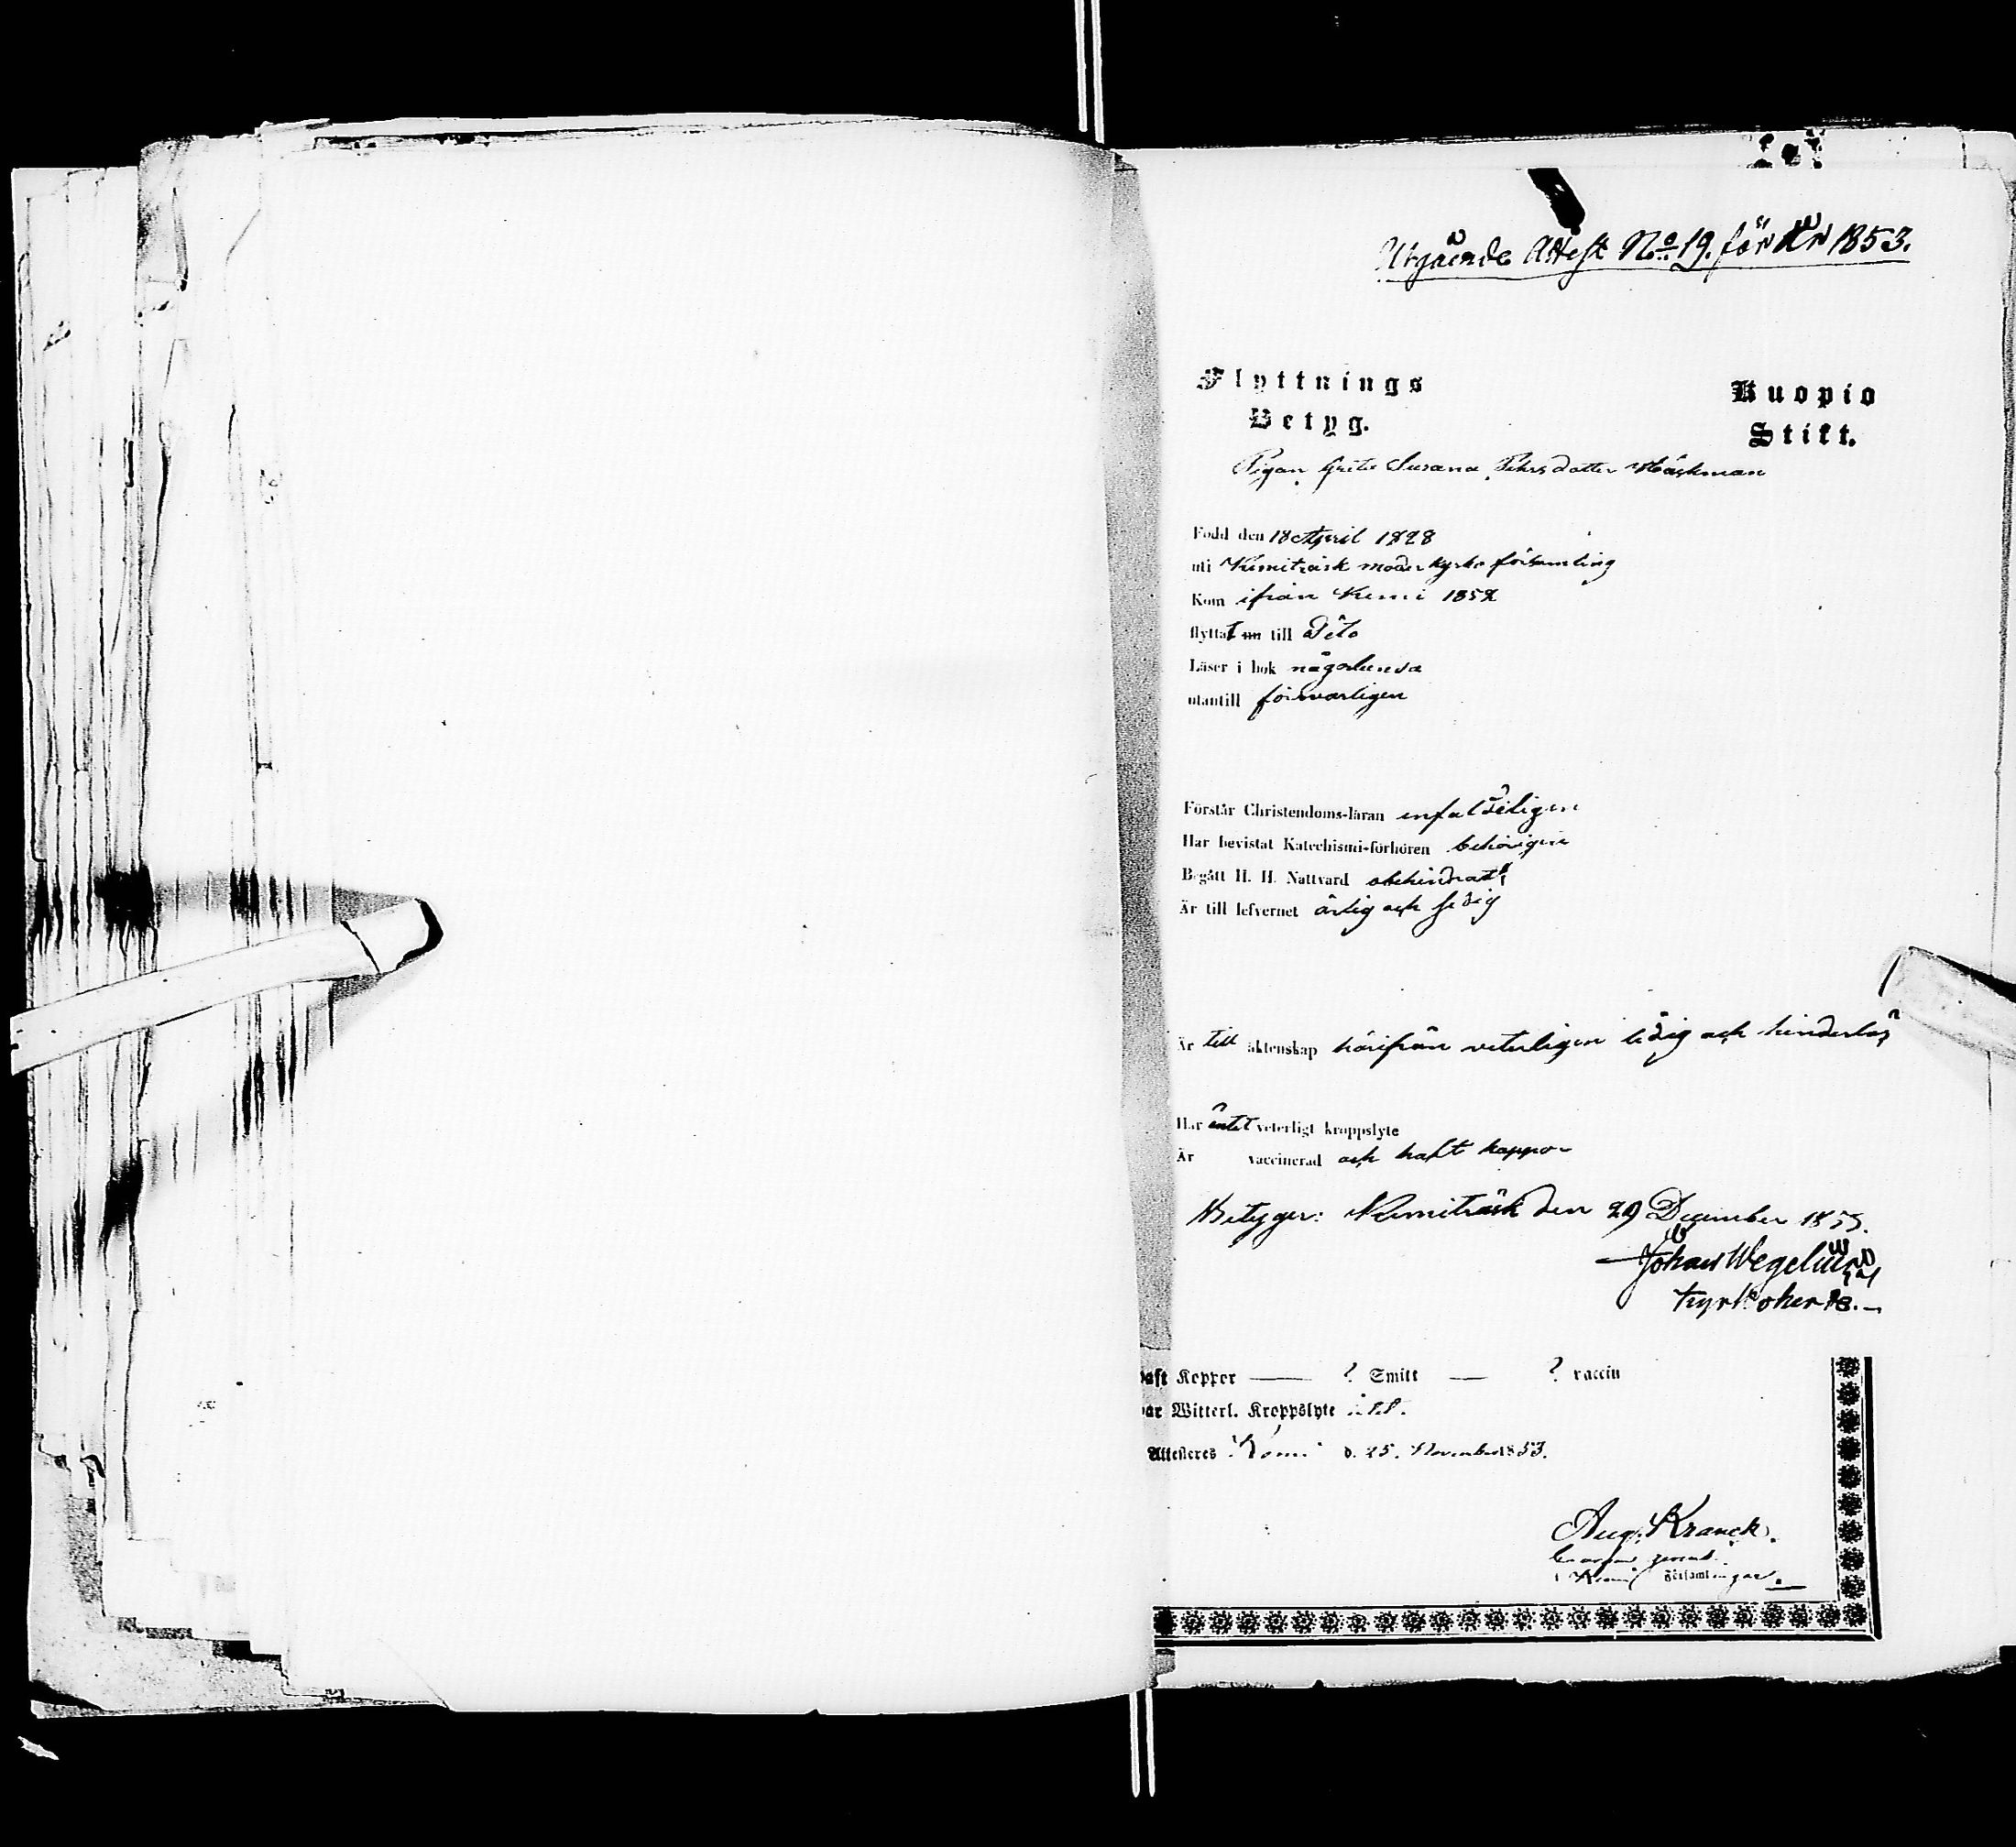 Utgående Attest No 19. för År 1853.
Flyttnings Betyg.
Kuopio Stift.
Pigan Greta Susana Pehrsdotter Mäskman
Född den 18 April 1828
uti Kemiträsk moderkyrko församling
Kom ifrån Kemi 1852
flyttat nu till Dito
Läser i bok någorlunda
utantill försvarligen
Förstår Christendoms-läran enfaldeligen
Har bevistat Katechismi-förhören behörigen
Begått H. H. Nattvard obehindradt
Är till lefvernet ärlig och sedig
Är till äktenskap härifrån veterligen ledig och hinderlös
Har intet veterligt kroppslyte
Är vaccinerad och haft koppor
Betyger: Kemiträsk den 29 December 1853.
Johan Wegelius
Kyrkoherde.
haft Koppor — ? Smitt — ? vaccin
har Witterl. Kroppslyte
Attesteres Kemi d. 25. November 1853.
Aug. Kranck.
i Kemi Församlingar.